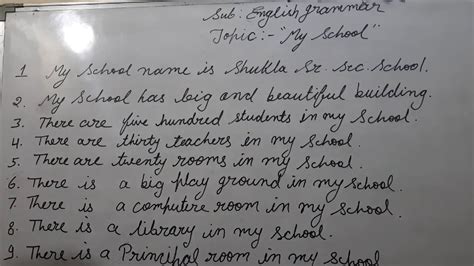 Sub: English grammar
Topic:- "My School"
1 My School name is Shukla Sr. Sec. School.
2. My School has big and beautiful building.
3. There are five hundred students in my School.
4. There are thirty teachers in my School.
5. There are twenty rooms in my School.
6. There is a big play ground in my school.
7. There is a computere room in my School.
8. There is a library in my School.
9. There is a Principal room in my School